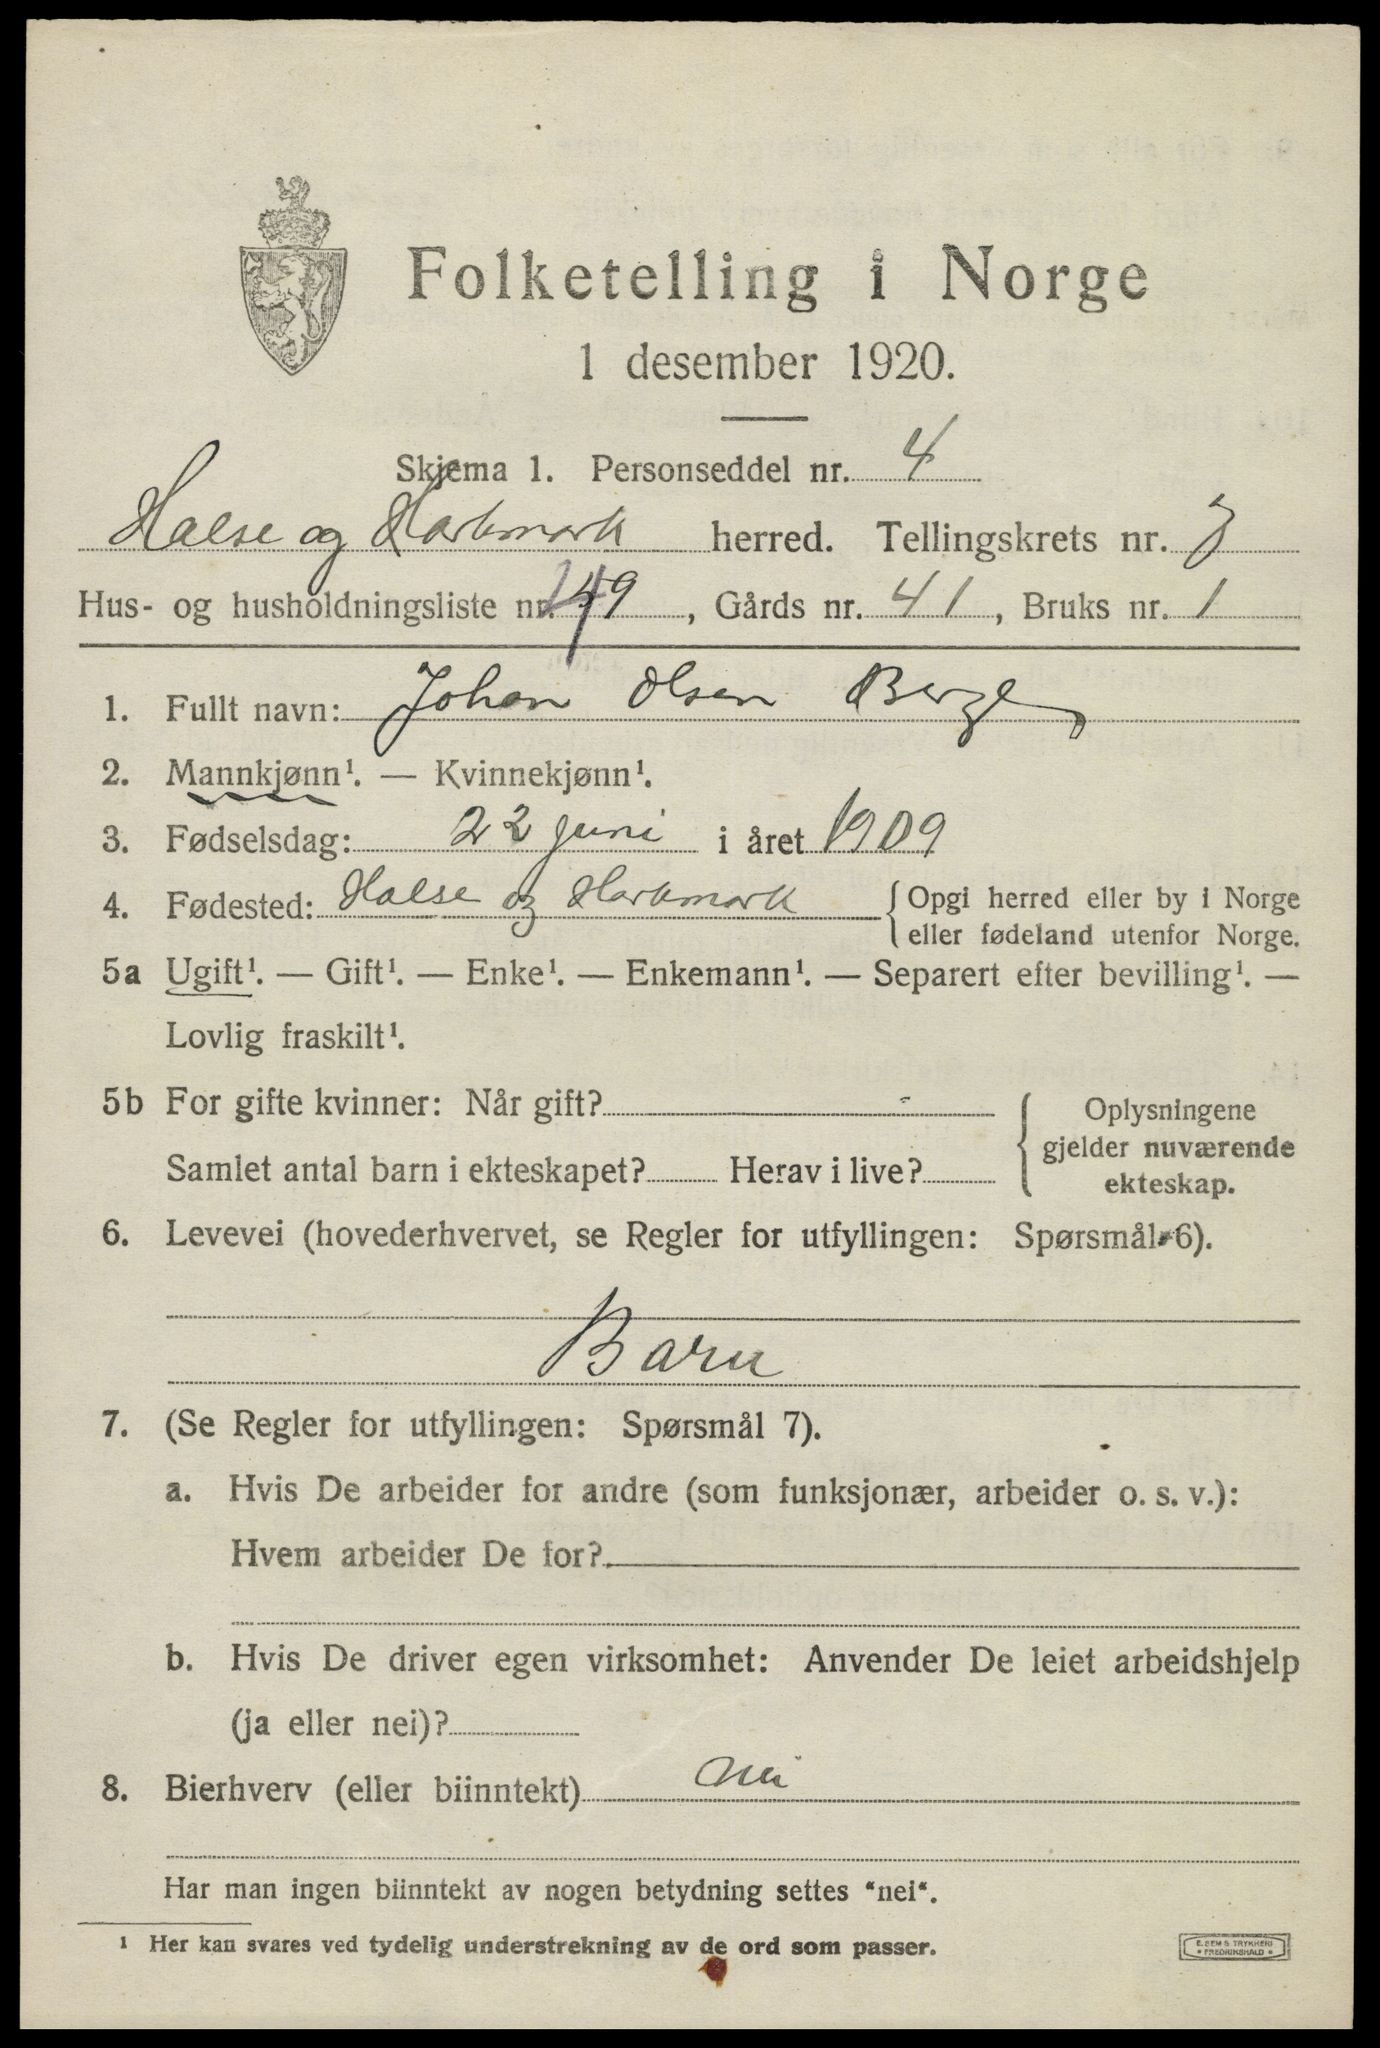 Folketelling i Norge
1 desember 1920.
Skjema 1. Personseddel nr. 4
Halse og Harkmark herred. Tellingskrets nr. 3
Hus- og husholdningsliste nr. 49, Gårds nr. 41, Bruks nr. 1
1. Fullt navn: Johan Olsen Berge
2. Mannkjønn¹. — Kvinnekjønn¹.
3. Fødselsdag: 22 juni i året 1909
4. Fødested: Halse og Harkmark { Opgi herred eller by i Norge
eller fødeland utenfor Norge.
5a Ugift¹. — Gift¹. — Enke¹. — Enkemann¹. — Separert efter bevilling¹. —
Lovlig fraskilt¹.
5b For gifte kvinner: Når gift? - { Oplysningene
gjelder nuværende
Samlet antal barn i ekteskapet? Herav i live?
ekteskap.
6. Levevei (hovederhvervet, se Regler for utfyllingen: Spørsmål 6).
Barn
7. (Se Regler for utfyllingen: Spørsmål 7).
a. Hvis De arbeider for andre (som funksjonær, arbeider o. s. v.):
Hvem arbeider De for?
b. Hvis De driver egen virksomhet: Anvender De leiet arbeidshjelp
(ja eller nei)?
8. Bierhverv (eller biinntekt) nei
Har man ingen biinntekt av nogen betydning settes “nei“.
¹ Her kan svares ved tydelig understrekning av de ord som passer.
E. SEM S TRYKKERI
• FREDRIKSHALD •